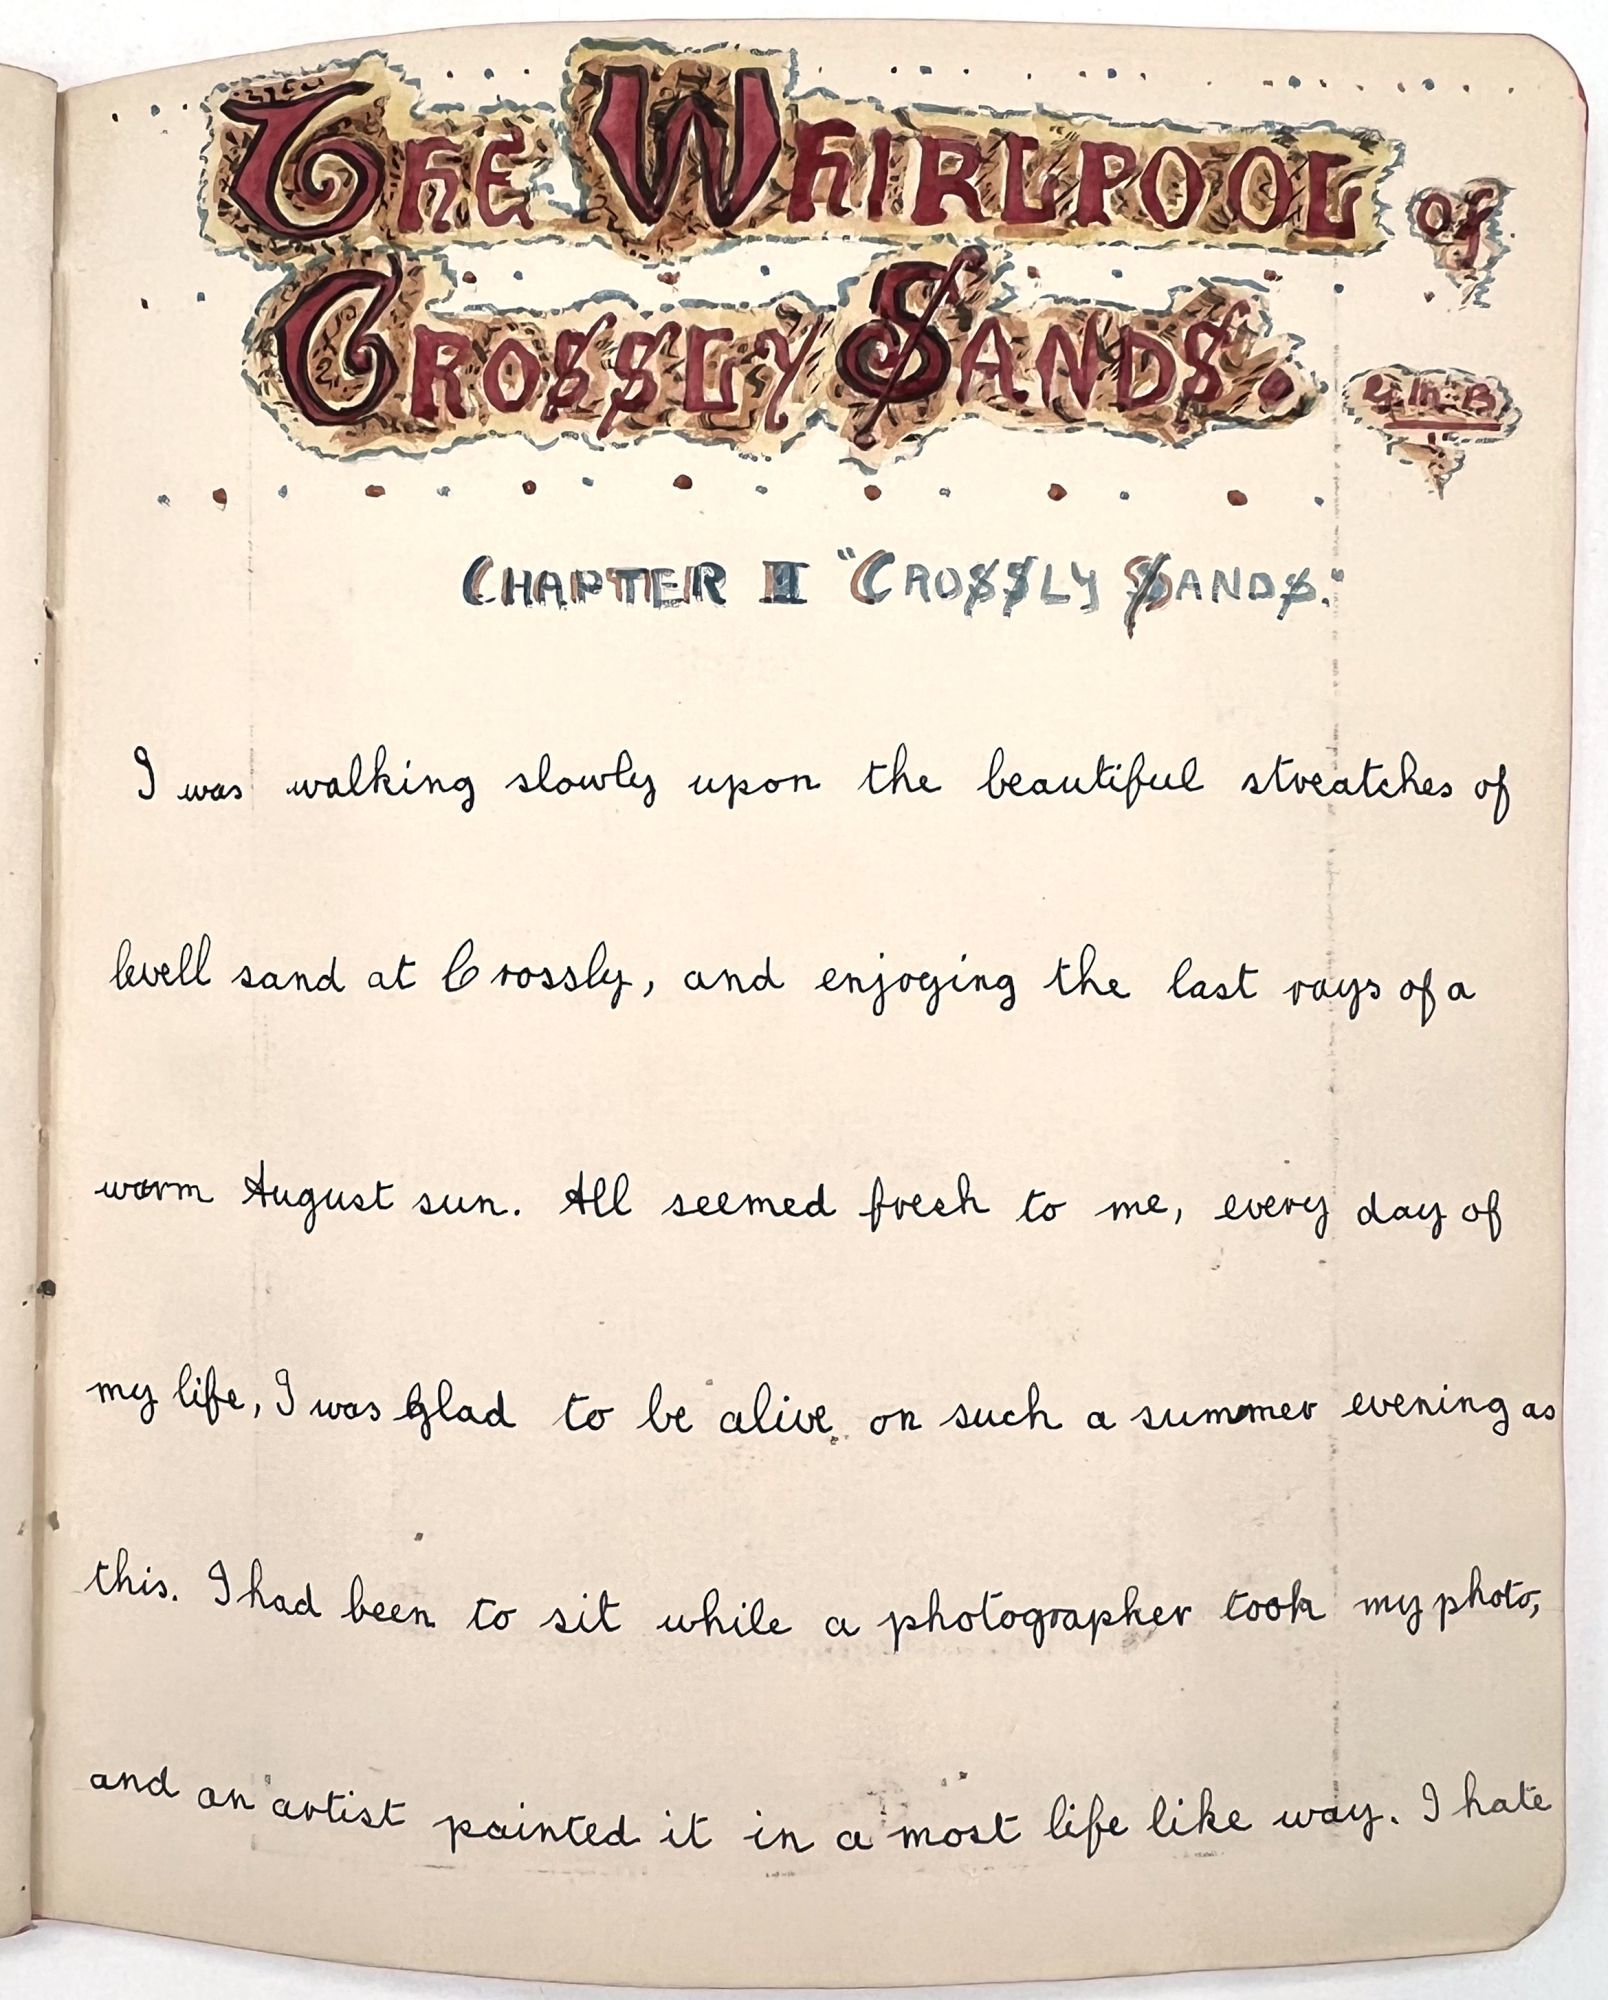 The Whirlpool of
Crossly Sands.
Chapter II "Crossly Sands."
I was walking slowly upon the beautiful streatches of
levell sand at Crossly, and enjoying the last rays of a
warm August sun. All seemed fresh to me, every day of
my life, I was glad to be alive on such a summer evening as
this. I had been to sit while a photographer took my photo,
and an artist painted it in a most life like way. I hate